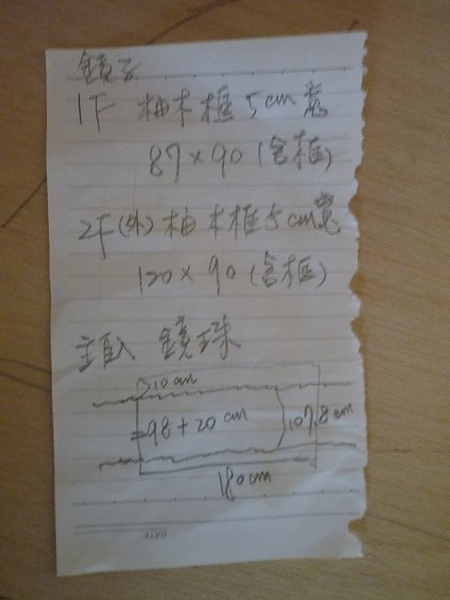 鏡子
1F 柚木框 5cm寬
87×90(含框)
2F(外)柚木框5cm寬
120×90(含框)
主臥 鏡珠
10cm
=98+20cm
107.8cm
180cm
DATE